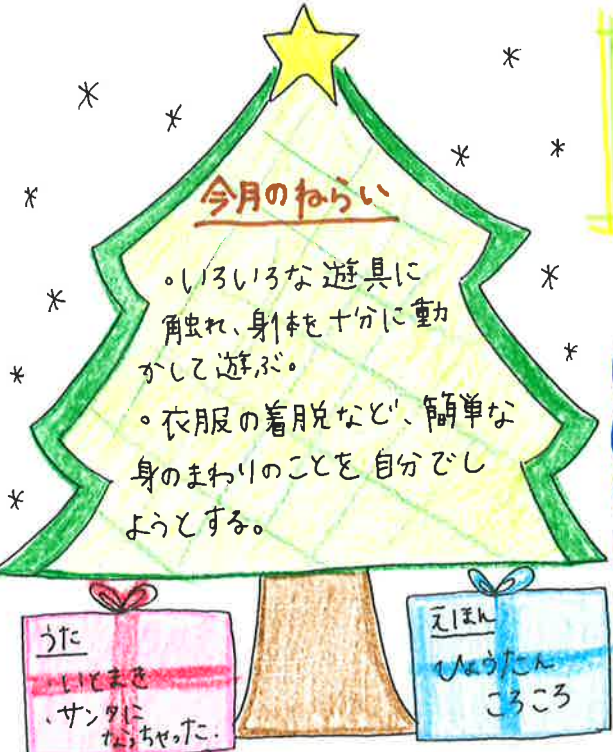 今月のねらい
。いろいろな遊具に
触れ、身体を十分に動
かして遊ぶ。
。衣服の着脱など、簡単な
身のまわりのことを自分でし
ようとする。
うた
・いとまき
・サンタに
なっちゃった.
えほん
ひょうたん
ころころ